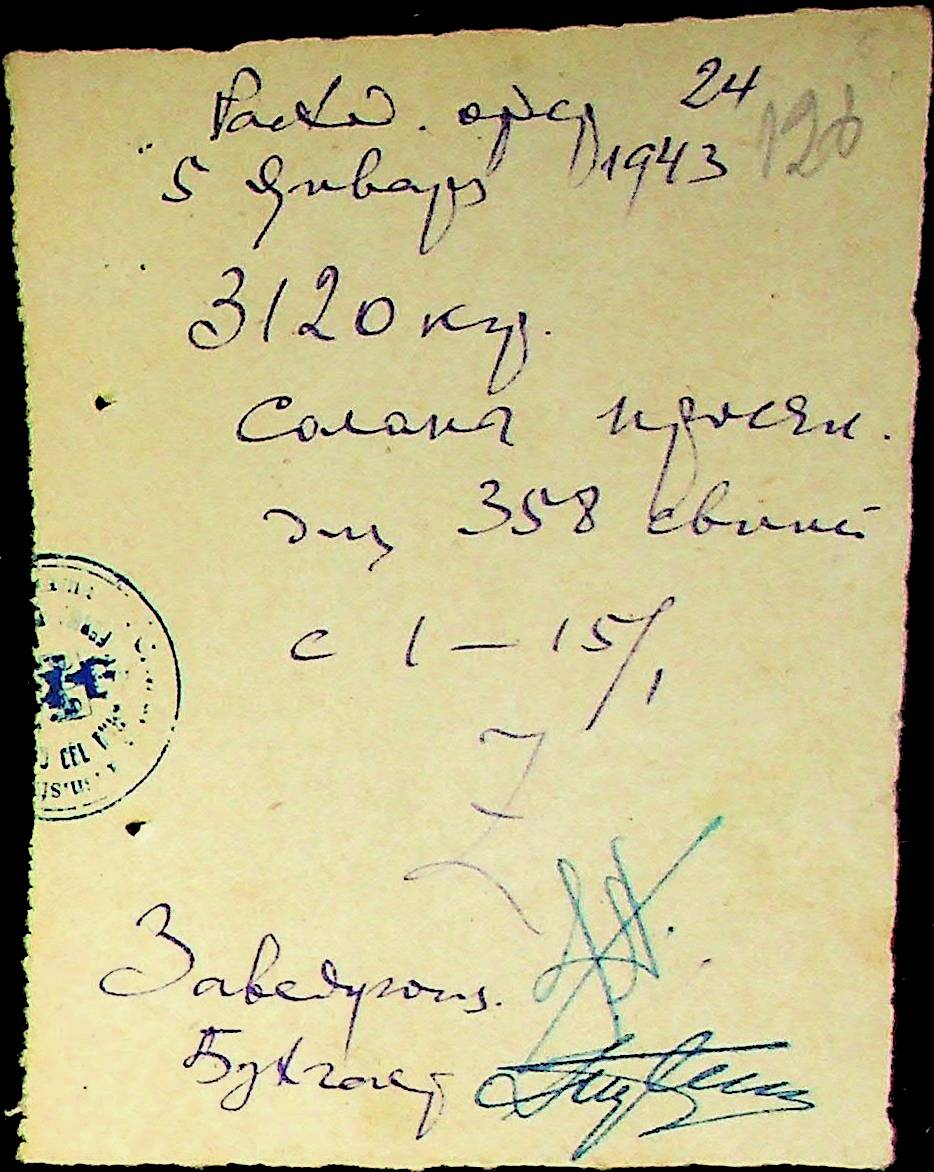 Расход. орд 24
5 Январ 1943 126
3120 кгр.
Солома просян.
для 358 свиней
с 1 — 15/1
CEL
Заведующ.
Бухгалтер